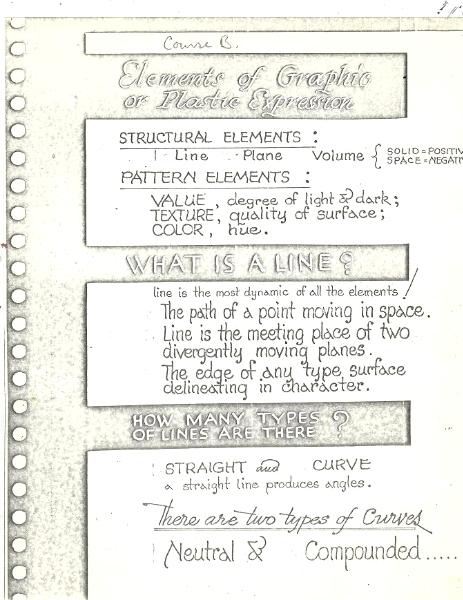 Course B.
Elements of Graphic
or Plastic Expression
STRUCTURAL ELEMENTS :
Line Plane Volume { SOLID = POSITIV
SPACE = NEGATIV
PATTERN ELEMENTS :
VALUE, degree of light & dark;
TEXTURE, quality of surface;
COLOR, hue.
WHAT IS A LINE?
line is the most dynamic of all the elements!
The path of a point moving in space.
Line is the meeting place of two
divergently moving planes.
The edge of any type surface
delineating in character.
HOW MANY TYPES
OF LINES ARE THERE?
STRAIGHT and CURVE
a straight line produces angles.
There are two types of Curves
Neutral & Compounded.....